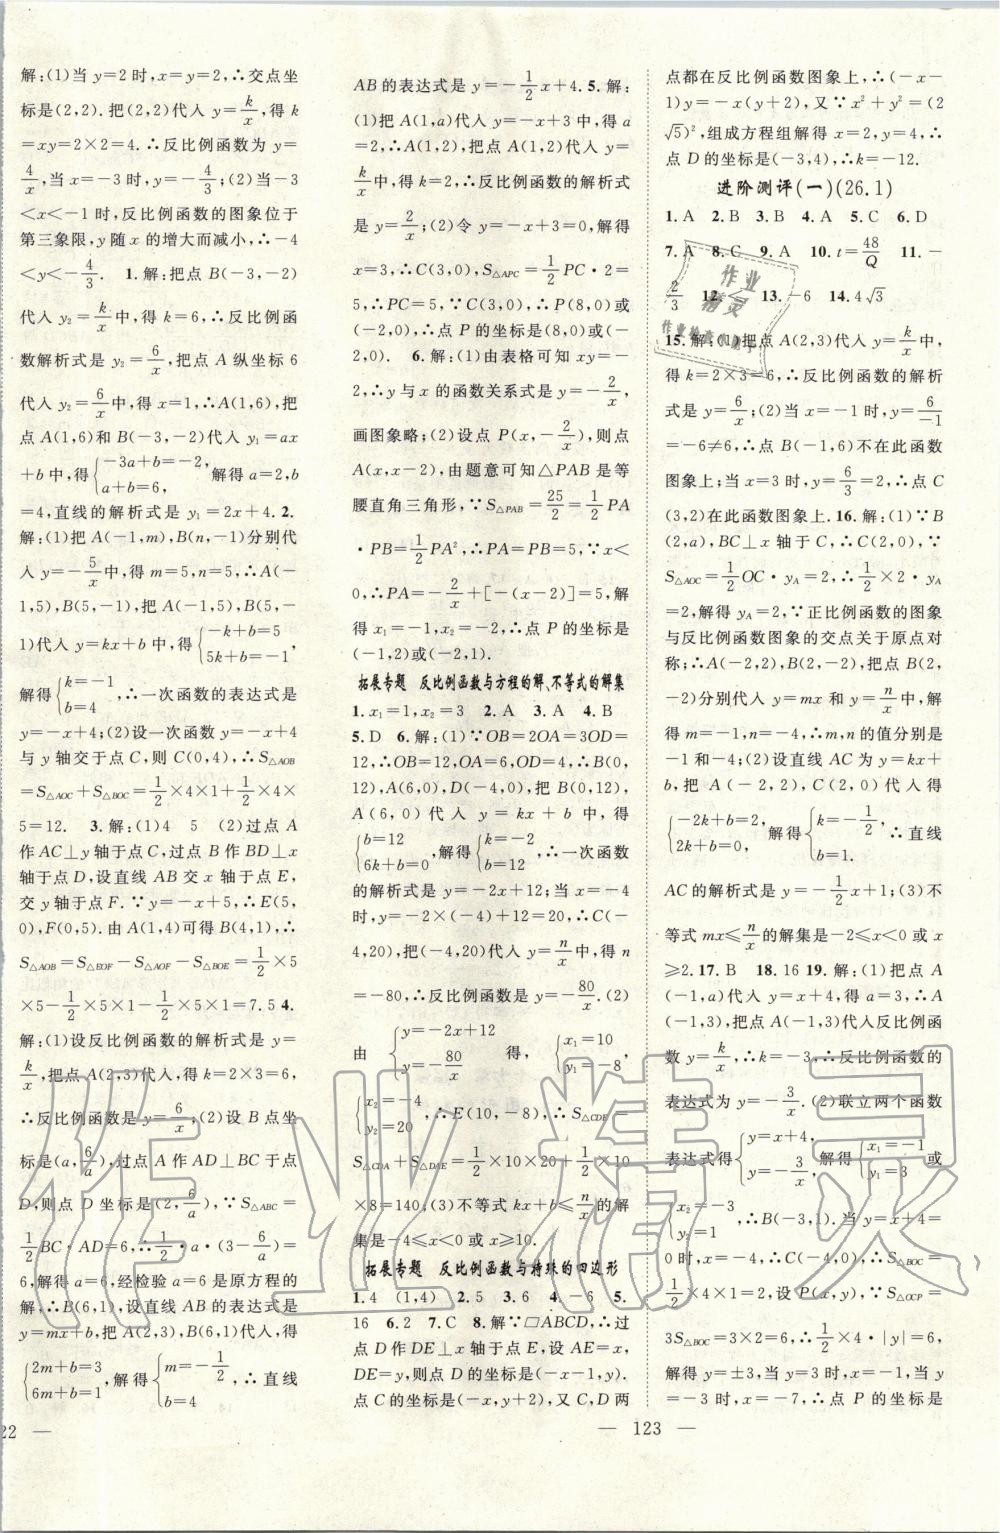 解:(1)当 y=2 时,x=y=2,∴交点坐
标是(2,2).把(2,2)代入 y=k/x,得 k
=xy=2×2=4.∴反比例函数为 y=
4/x,当 x=-3 时,y=-4/3;(2)当-3
<x<-1 时,反比例函数的图象位于
第三象限,y 随 x 的增大而减小,∴-4
<y<-4/3. 1.解:把点 B(-3,-2)
代入 y₂=k/x中,得 k=6,∴反比例函
数解析式是 y₂=6/x,把点 A 纵坐标 6
代入 y₂=6/x中,得 x=1,∴A(1,6),把
点 A(1,6)和 B(-3,-2)代入 y₁=ax
+b 中,得{-3a+b=-2, a+b=6, 解得 a=2,b
=4,直线的解析式是 y₁=2x+4. 2.
解:(1)把 A(-1,m),B(n,-1)分别代
入 y=-5/x中,得 m=5,n=5,∴A(-
1,5),B(5,-1),把 A(-1,5),B(5,-
1)代入 y=kx+b 中,得{-k+b=5 5k+b=-1,
解得{k=-1 b=4 ∴一次函数的表达式是
y=-x+4;(2)设一次函数 y=-x+4
与 y 轴交于点 C,则 C(0,4),∴S△AOB
=S△AOC+S△BOC=1/2×4×1+1/2×4×
5=12. 3.解:(1)4 5 (2)过点 A
作 AC⊥y 轴于点 C,过点 B 作 BD⊥x
轴于点 D,设直线 AB 交 x 轴于点 E,
交 y 轴于点 F.∵y=-x+5,∴E(5,
0),F(0,5).由 A(1,4)可得 B(4,1),∴
S△AOB=S△EOF-S△AOF-S△BOE=1/2×5
×5-1/2×5×1-1/2×5×1=7.5 4.
解:(1)设反比例函数的解析式是 y=
k/x,把点 A(2,3)代入,得 k=2×3=6,
∴反比例函数是 y=6/x;(2)设 B 点坐
标是(a,6/a),过点 A 作 AD⊥BC 于点
D,则点 D 坐标是(2,6/a),∵S△ABC=
1/2BC·AD=6,∴1/2·a·(3-6/a)=
6,解得 a=6,经检验 a=6 是原方程的
解,∴B(6,1),设直线 AB 的表达式是
y=mx+b,把 A(2,3),B(6,1)代入,得
{2m+b=3 6m+b=1,解得{m=-1/2 b=4,∴直线
22 —
AB 的表达式是 y=-1/2x+4. 5.解:
(1)把 A(1,a)代入 y=-x+3 中,得 a
=2,∴A(1,2),把点 A(1,2)代入 y=
k/x中,得 k=2,∴反比例函数的解析式
是 y=2/x;(2)令 y=-x+3=0,解得
x=3,∴C(3,0),S△APC=1/2PC·2=
5,∴PC=5,∵C(3,0),∴P(8,0)或
(-2,0),∴点 P 的坐标是(8,0)或(-
2,0). 6.解:(1)由表格可知 xy=-
2,∴y 与 x 的函数关系式是 y=-2/x,
画图象略;(2)设点 P(x,-2/x),则点
A(x,x-2),由题意可知△PAB 是等
腰直角三角形,∵S△PAB=25/2=1/2PA
·PB=1/2PA²,∴PA=PB=5,∵x<
0,∴PA=-2/x+[-(x-2)]=5,解
得 x₁=-1,x₂=-2,∴点 P 的坐标是
(-1,2)或(-2,1).
拓展专题 反比例函数与方程的解、不等式的解集
1. x₁=1,x₂=3 2. A 3. A 4. B
5. D 6.解:(1)∵OB=2OA=3OD=
12,∴OB=12,OA=6,OD=4,∴B(0,
12),A(6,0),D(-4,0),把 B(0,12),
A(6,0)代入 y=kx+b 中,得
{b=12 6k+b=0,解得{k=-2 b=12,∴一次函数
的解析式是 y=-2x+12;当 x=-4
时,y=-2×(-4)+12=20,∴C(-
4,20),把(-4,20)代入 y=n/x中,得 n
=-80,∴反比例函数是 y=-80/x.(2)
由{y=-2x+12 y=-80/x 得,{x₁=10 y₁=-8
{x₂=-4 y₂=20,∴E(10,-8),∴S△CDE=
S△CDA+S△DAE=1/2×10×20+1/2×10
×8=140,(3)不等式 kx+b≤n/x的解
集是-4≤x<0 或 x≥10.
拓展专题 反比例函数与特殊的四边形
1.4 (1,4) 2.5 3.6 4.-6 5.
16 6.2 7.C 8.解∵□ABCD,∴过
点 D 作 DE⊥x 轴于 E,设 AE=x,
DE=y,则点 D 的坐标是(-x-1,y),
点 C 的坐标是(-x,y+2),又 C,D 两
— 123 —
点都在反比例函数图象上,∴(-x-
1)y=-x(y+2),又∵x²+y²=(2
√5)²,组成方程组解得 x=2,y=4,∴
点 D 的坐标是(-3,4),∴k=-12.
进阶测评(一)(26.1)
1. A 2. B 3. B 4. A 5. C 6. D
7. A 8. C 9. A 10. t=48/Q 11. -
2/3 12. < 13. -6 14. 4√3
15.解:(1)把点 A(2,3)代入 y=k/x中,
得 k=2×3=6,∴反比例函数的解析
式是 y=6/x;(2)当 x=-1 时,y=6/-1
=-6≠6,∴点 B(-1,6)不在此函数
图象上;当 x=3 时,y=6/3=2,∴点 C
(3,2)在此函数图象上. 16.解:(1)∵B
(2,a),BC⊥x 轴于 C,∴C(2,0),∵
S△AOC=1/2OC·yA=2,∴1/2×2·yA
=2,解得 yA=2,∵正比例函数的图象
与反比例函数图象的交点关于原点对
称;∴A(-2,2),B(2,-2),把点 B(2,
-2)分别代入 y=mx 和 y=n/x中,解
得 m=-1,n=-4,∴m,n 的值分别是
-1 和-4;(2)设直线 AC 为 y=kx+
b,把点 A(-2,2),C(2,0)代入得
{-2k+b=2, 2k+b=0, 解得{k=-1/2, b=1. ∴直线
AC 的解析式是 y=-1/2x+1;(3)不
等式 mx≤n/x的解集是-2≤x<0 或 x
≥2. 17. B 18. 16 19.解:(1)把点 A
(-1,a)代入 y=x+4,得 a=3,∴A
(-1,3),把点 A(-1,3)代入反比例函
数 y=k/x,得 k=-3,∴反比例函数的
表达式为 y=-3/x.(2)联立两个函数
表达式得{y=x+4, y=-3/x, 解得{x₁=-1 y₁=3 或
{x₂=-3 y₂=1,∴B(-3,1).当 y=x+4=
0 时,x=-4,∴C(-4,0),∴S△BOC=
1/2×4×1=2,设 P(x,y),∵S△OCP=
3S△BOC=3×2=6,∴1/2×4·|y|=6,
解得 y=±3,当 y=3 时,x=-1,当 y
=-3 时,x=-7,∴点 P 的坐标是
作业
精灵
作业精灵